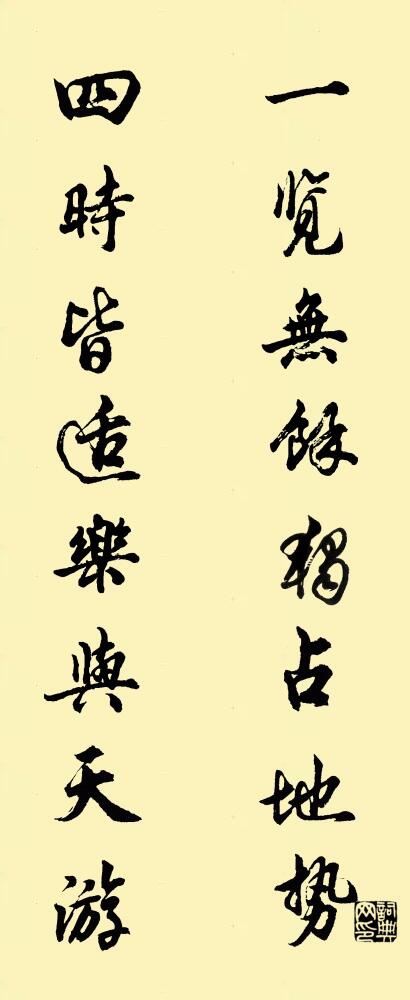 一覽無餘獨占地勢
四時皆适樂與天游
詞典网印